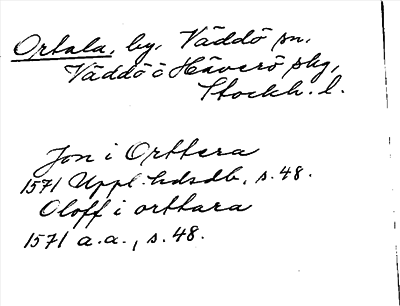 Ortala, by, Väddö sn,
Väddö o Häverö skg,
Stockh. l.
Jon i Orttera
1571 Uppl. hdsdb, s. 48.
Oloff i orttara
1571 a.a., s. 48.